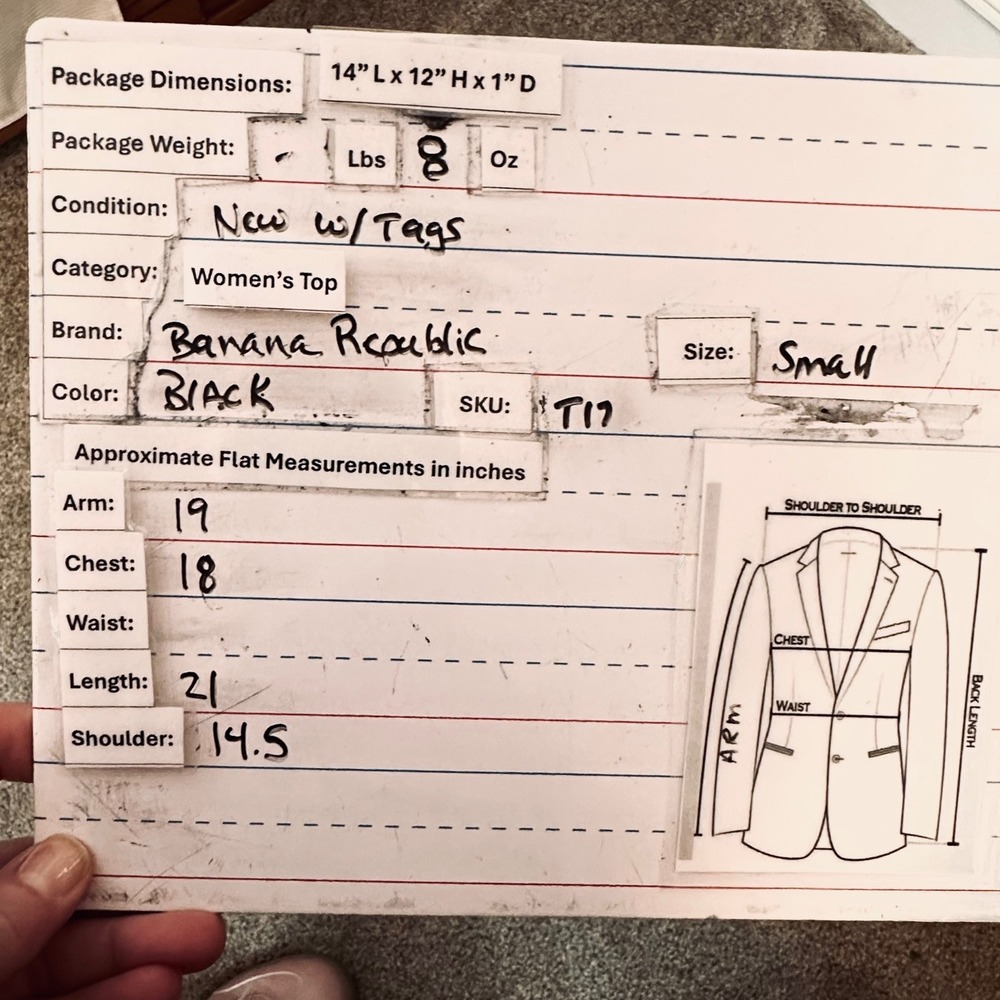 Package Dimensions: 14” L x 12” H x 1” D
Package Weight: - Lbs 8 Oz
Condition: New w/Tags
Category: Women’s Top
Brand: Banana Republic
Size: Small
Color: BLACK SKU: T17
Approximate Flat Measurements in inches
Arm: 19
Chest: 18
Waist:
Length: 21
Shoulder: 14.5
SHOULDER TO SHOULDER
CHEST
WAIST
ARM
BACK LENGTH